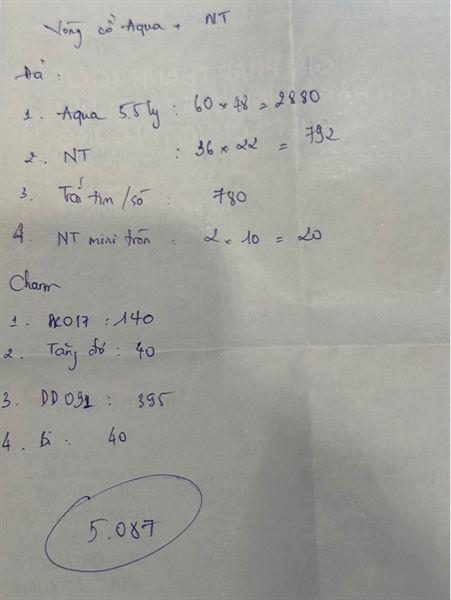 Vòng cổ Aqua + NT
Đá :
1. Aqua 5.5 ly : 60 x 48 = 2880
2. NT : 36 x 22 = 792
3. Trái tim / số : 780
4. NT mini tròn : 2 x 10 = 20
Charm
1. 017 : 140
2. Tầng đó : 40
3. DD091 : 395
4. Bi : 40
5.087